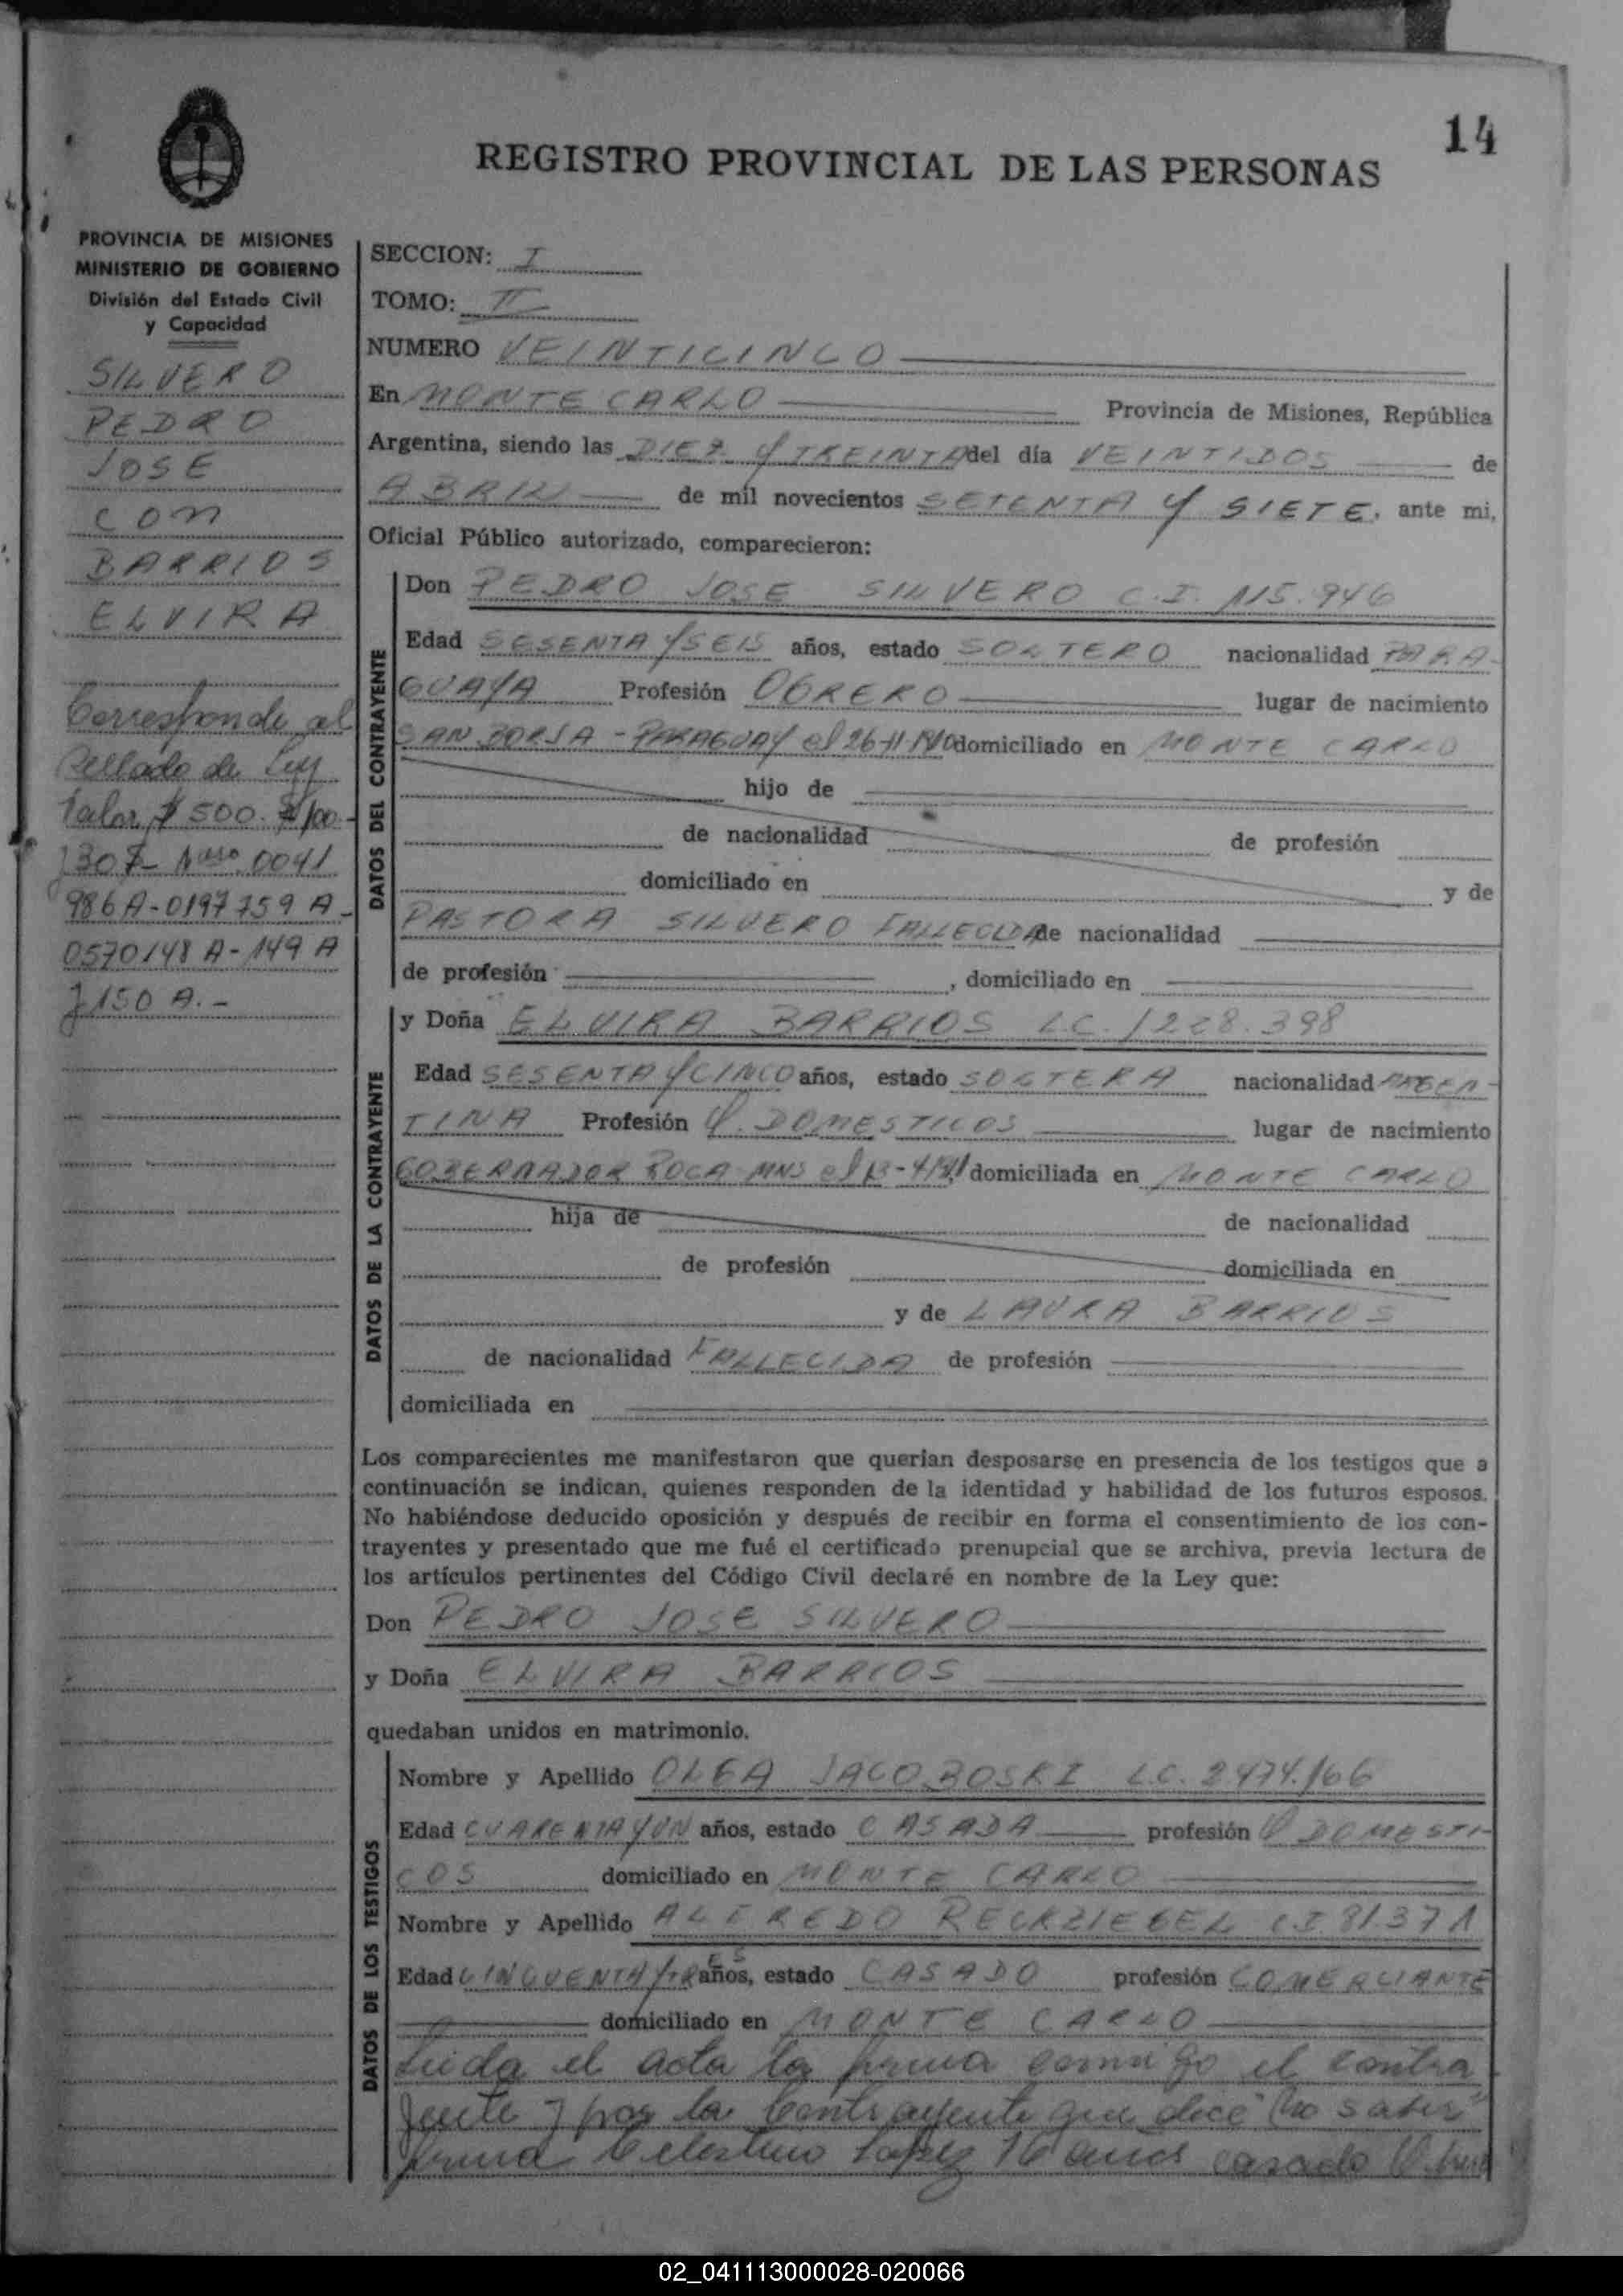 14
REGISTRO PROVINCIAL DE LAS PERSONAS
PROVINCIA DE MISIONES
MINISTERIO DE GOBIERNO
División del Estado Civil
y Capacidad
SILVERO
PEDRO
JOSE
CON
BARRIOS
ELVIRA
Corresponde al
Sellado de Ley
Valor $ 500.
0041
986 A-0197759 A-
0570148 A-149 A
y 150 A.-
SECCION: I
TOMO: II
NUMERO VEINTICINCO
En MONTE CARLO Provincia de Misiones, República
Argentina, siendo las DIEZ Y TREINTA del día VEINTIDOS de
ABRIL de mil novecientos SETENTA Y SIETE, ante mi,
Oficial Público autorizado, comparecieron:
DATOS DEL CONTRAYENTE
Don PEDRO JOSE SILVERO C.I. 115.946
Edad SESENTA Y SEIS años, estado SOLTERO nacionalidad PARA-
GUAYA Profesión OBRERO lugar de nacimiento
SAN BORJA - PARAGUAY el 26-11-1910 domiciliado en MONTE CARLO
hijo de
de nacionalidad de profesión
domiciliado en y de
PASTORA SILVERO FALLECIDA de nacionalidad
de profesión , domiciliado en
DATOS DE LA CONTRAYENTE
y Doña ELVIRA BARRIOS L.C. 1228.398
Edad SESENTA Y CINCO años, estado SOLTERA nacionalidad ARGEN-
TINA Profesión Q. DOMESTICOS lugar de nacimiento
GOBERNADOR ROCA MNS el domiciliada en MONTE CARLO
hija de de nacionalidad
de profesión domiciliada en
y de LAURA BARRIOS
de nacionalidad FALLECIDA de profesión
domiciliada en
Los comparecientes me manifestaron que querían desposarse en presencia de los testigos que a
continuación se indican, quienes responden de la identidad y habilidad de los futuros esposos.
No habiéndose deducido oposición y después de recibir en forma el consentimiento de los con-
trayentes y presentado que me fué el certificado prenupcial que se archiva, previa lectura de
los artículos pertinentes del Código Civil declaré en nombre de la Ley que:
Don PEDRO JOSE SILVERO
y Doña ELVIRA BARRIOS
quedaban unidos en matrimonio.
DATOS DE LOS TESTIGOS
Nombre y Apellido OLGA JACOBOSKI L.C. 2474.166
Edad CUARENTA Y UN años, estado CASADA profesión Q DOMESTI-
COS domiciliado en MONTE CARLO
Nombre y Apellido ALFREDO RECKZIEGEL C.I 81.371
Edad CINCUENTA Y TRES años, estado CASADO profesión COMERCIANTE
domiciliado en MONTE CARLO
Leida el acta la firma conmigo el contra
yente y por la contrayente que dice "no saber"
firma Celestino Lopez 76 años casado Obrero
02_041113000028-020066